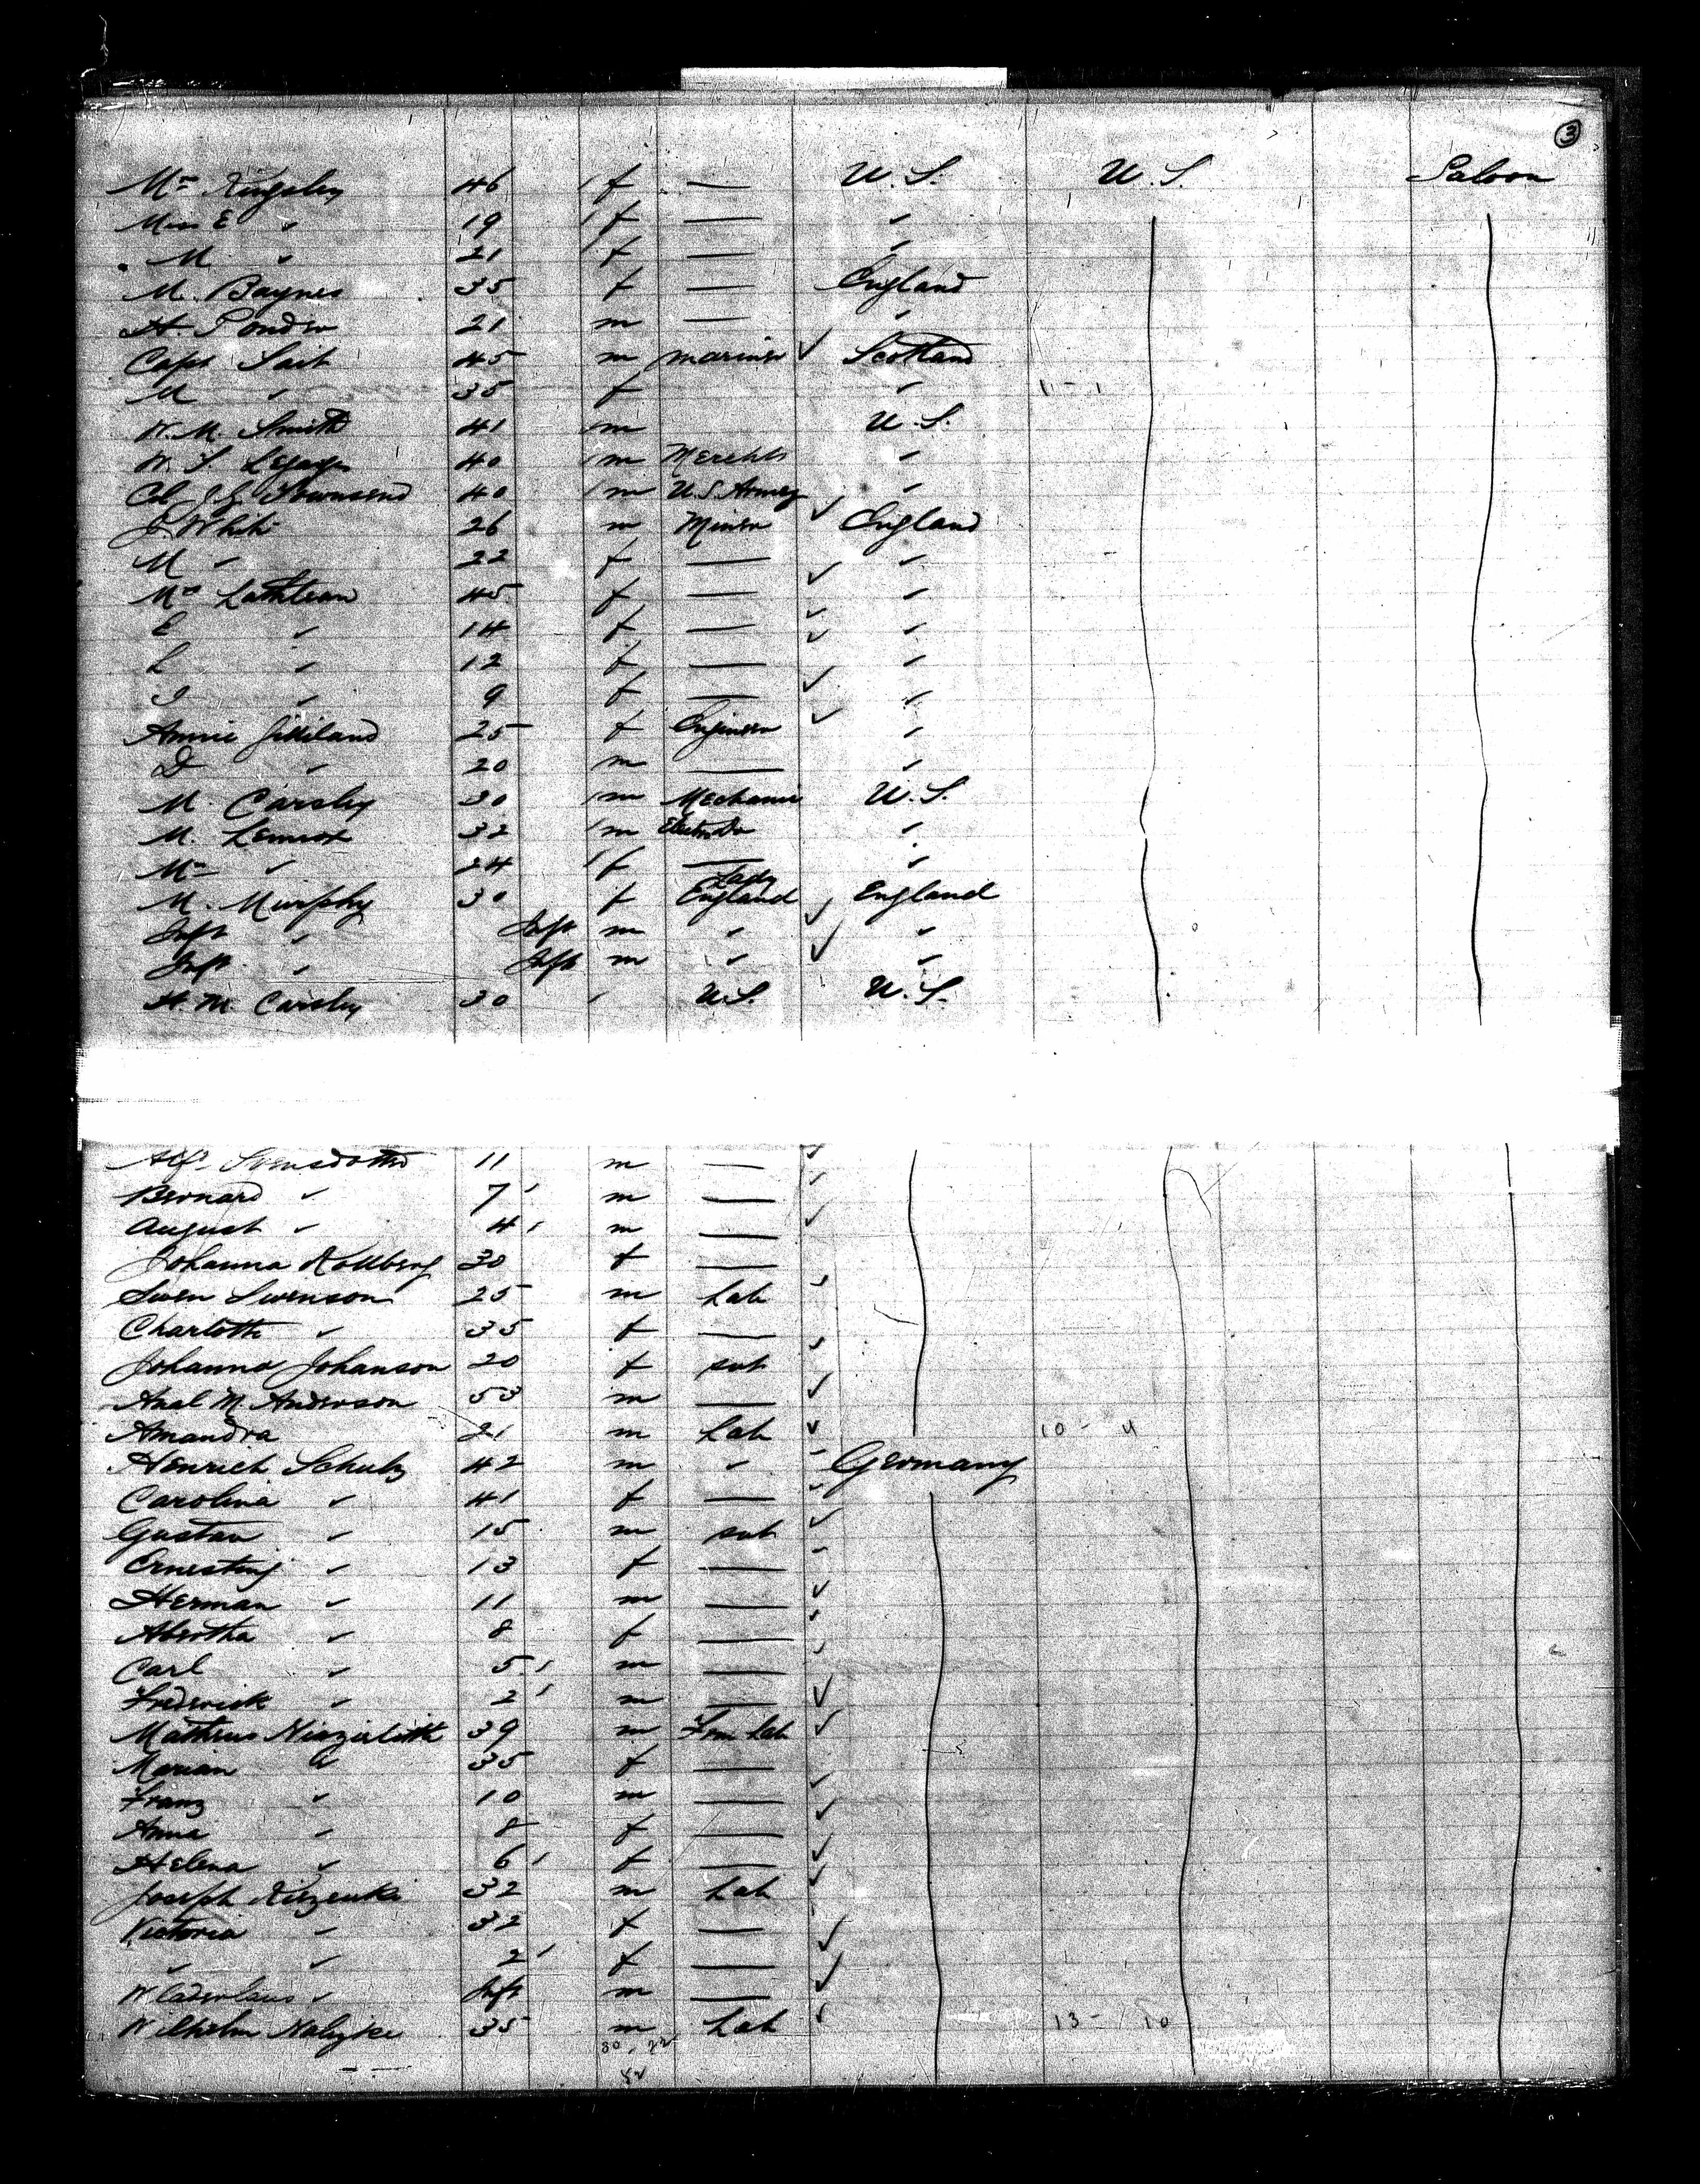 3
Mrs Kingsley 46 / f — U.S. U.S. Saloon
Miss E " 19 / f — "
" M " 21 / f — "
M. Baynes 35 f — England
H. Ponder 21 m — "
Capt Tait 45 m mariner ✓ Scotland
M " 35 f " 11 - 1
W. M. Smith 41 / m U.S.
W. S. 40 / m Merchts "
Col J. G. Townsend 40 / m U.S. Army "
J. White 26 m Miner ✓ England
M " 22 f — "
Mrs 45 f — ✓ "
E " 14 f — ✓ "
L " 12 f — ✓ "
I " 9 f — ✓ "
Annie Gilliland 25 f Engineer ✓ "
D " 20 m — "
M. Carsley 30 / m Mechanic U.S.
M. Lennox 32 / m "
Mrs " 24 / f — "
M. Murphy 30 f Lady England ✓ England
Inft " Inft m " ✓ "
Inft " Inft m " ✓ "
H. M. Carsley 30 / U.S. U.S.
Alfd. Svensdotter 11 m — ✓
Bernard " 7 m — ✓
August " 4 m — ✓
Johanna 30 f —
Swen Swenson 25 m Lab ✓
Charlotte " 35 f —
Johanna Johanson 20 f svt ✓
Axel M. Anderson 53 m — ✓
Amandra 21 m Lab ✓ 10 - 4
Henrich Schulz 42 m " Germany
Carolina " 41 f — ✓
Gustav " 15 m svt ✓
Ernesting " 13 f —
Herman " 11 m — ✓
Abertha " 8 f — ✓
Carl " 5 m — ✓
Frederick " 2 m — ✓
Mathius 39 m Fm Lab ✓
Marian " 35 f —
Franz " 10 m — ✓
Anna " 8 f — ✓
Helena " 6 f — ✓
Joseph 32 m Lab ✓
Victoria " 32 f —
" " 2 f — ✓
Wladerlaus " Inft m — ✓
Wilhelm 35 m Lab ✓ 13 - 10
30 , 22